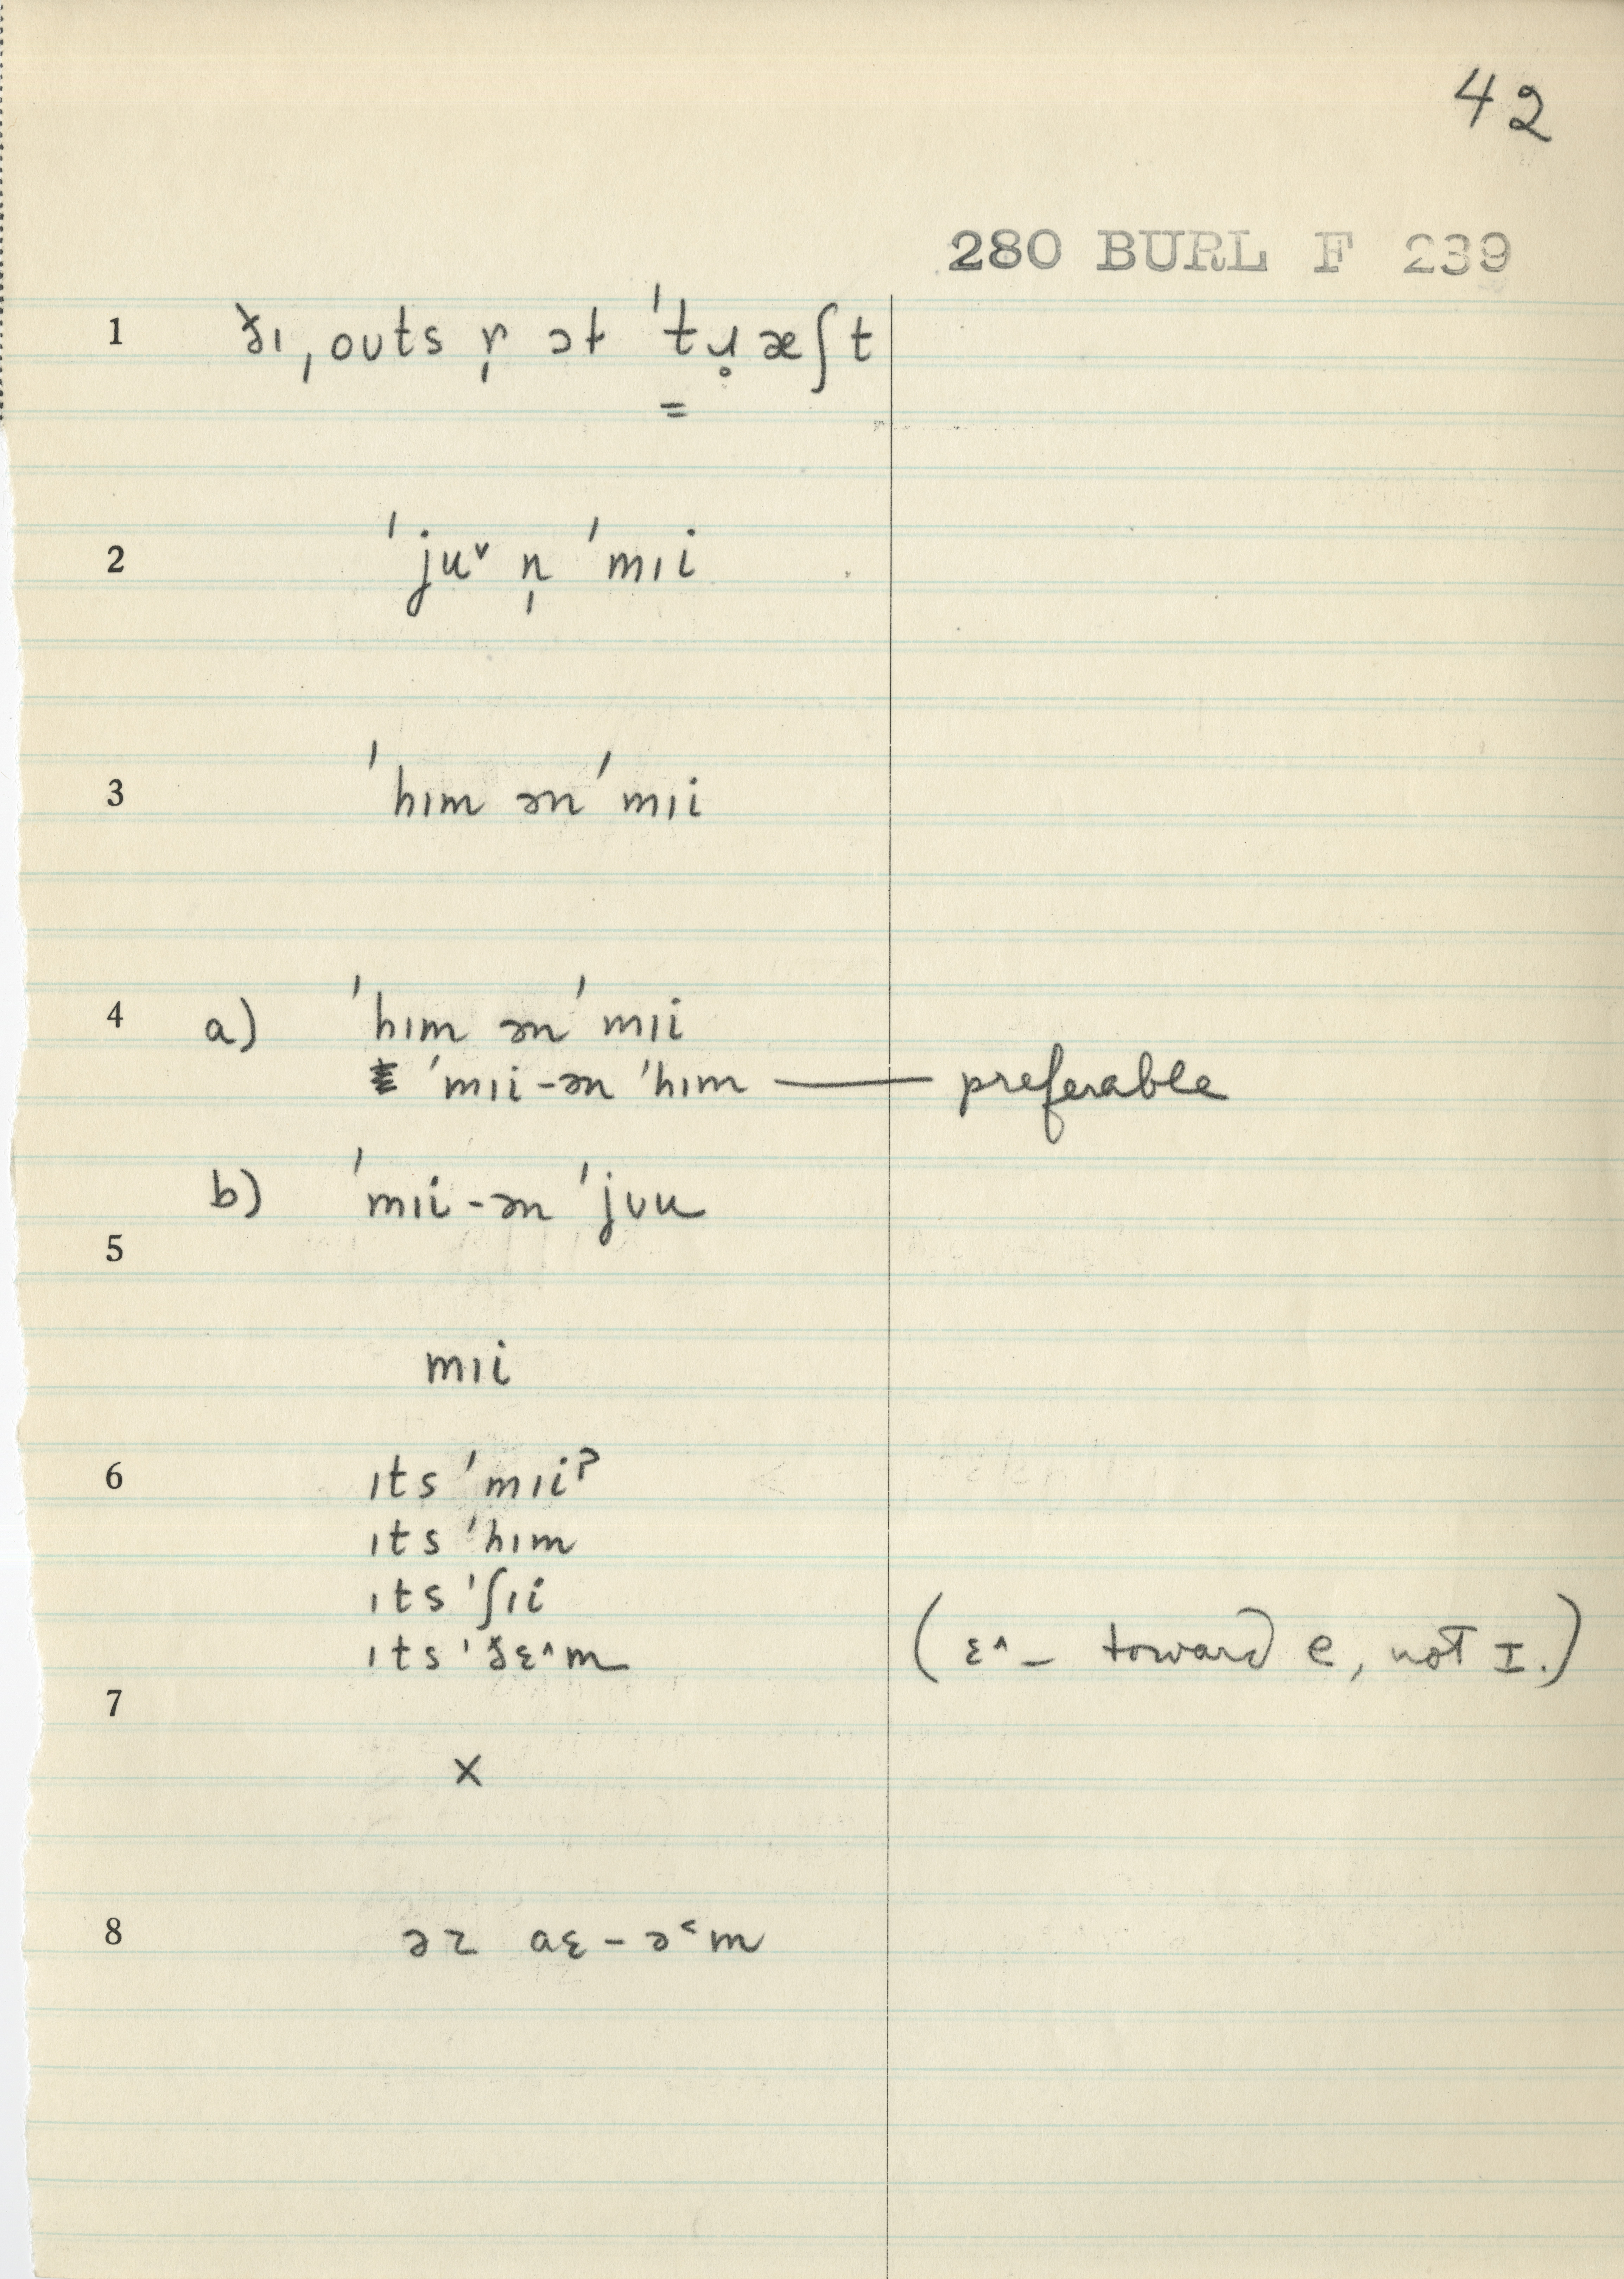 42
280 BURL F 239
1 ðɪ ˌouts ɾ̩ ət ˈtɹ̥æʃt
=
2 ˈjuᵛ n̩ ˈmɪi
3 ˈhɪm ən ˈmɪi
4 a) ˈhɪm ən ˈmɪi
ˈmɪi-ən ˈhɪm — preferable
b) ˈmɪi-ən ˈjʊu
5
mɪi
6 ɪts ˈmɪiˀ
ɪts ˈhɪm
ɪts ˈʃɪi
ɪts ˈðɛ^m (ɛ^ – toward e, not I.)
7
x
8 əz aɛ-ə˂m